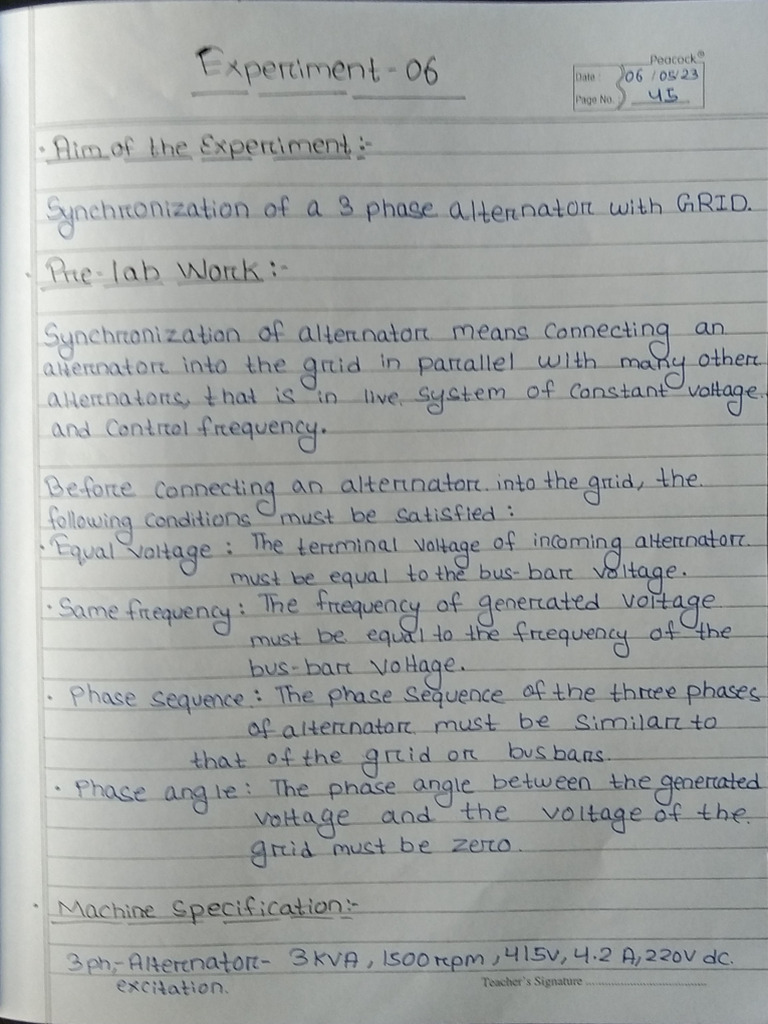 Experiment-06
Peacock®
Date: 06/05/23
Page No. 45
· Aim of the Experiment:-
Synchronization of a 3 phase alternator with GRID.
· Pre-lab Work:-
Synchronization of alternator means connecting an
alternator into the grid in parallel with many other
alternators, that is in live system of constant voltage
and control frequency.
Before connecting an alternator into the grid, the
following conditions must be satisfied:
· Equal voltage: The terminal voltage of incoming alternator
must be equal to the bus-bar voltage.
· Same frequency: The frequency of generated voltage
must be equal to the frequency of the
bus-bar voltage.
· Phase sequence: The phase sequence of the three phases
of alternator must be similar to
that of the grid or busbars.
· Phase angle: The phase angle between the generated
voltage and the voltage of the
grid must be zero.
· Machine Specification:-
3ph,-Alternator- 3KVA, 1500rpm, 415V, 4.2 A, 220V dc.
excitation.
Teacher's Signature